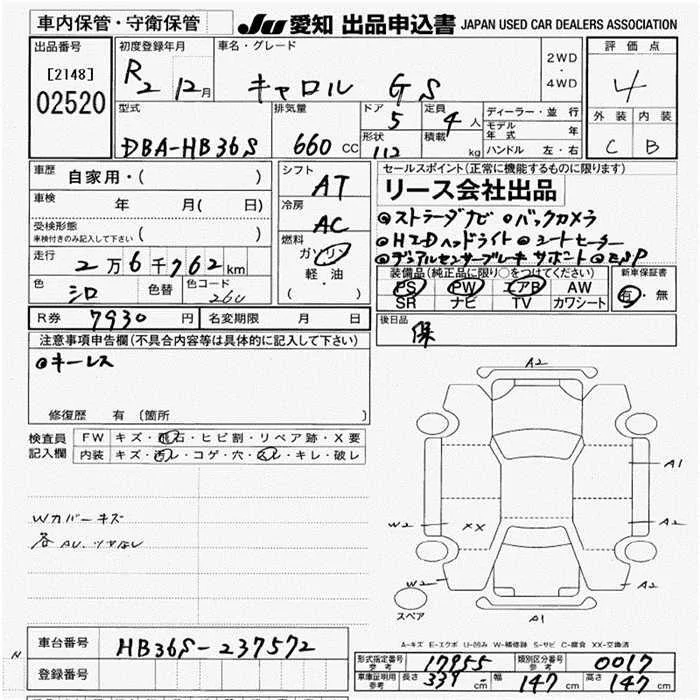 車内保管・守衛保管
JU 愛知 出品申込書 JAPAN USED CAR DEALERS ASSOCIATION
出品番号
[2148]
02520
初度登録年月
R2 12月
車名・グレード
キャロル GS
2WD
・
4WD
評価点
4
外装 内装
C B
型式
DBA-HB36S
排気量
660 CC
ドア
5
形状
112
定員
4人
積載
kg
ディーラー・並行
モデル年式 年
ハンドル 左・右
車歴
自家用・( )
車検
年 月( 日)
受検形態
車検付きのみ記入して下さい ( )
走行
2万6千762km
色
シロ
色替
色コード
26U
シフト
AT
冷房
AC
燃料
ガソリン
軽・油
( )
セールスポイント(正常に機能するものに限ります)
リース会社出品
◎ストラーダナビ ◎バックカメラ
◎HIDヘッドライト ◎シートヒーター
◎デュアルセンサーブレーキサポート ◎ESP
装備品(純正品に限り○をつけてください)
PS PW エアB AW
SR ナビ TV カワシート
新車保証書
有・無
R券 7930円
名変期限 月 日
後日品
保
注意事項申告欄(不具合内容等は具体的に記入して下さい)
◎キーレス
修復歴 有(箇所 )
検査員記入欄
FW キズ・飛石・ヒビ割・リペア跡・X要
内装 キズ・汚レ・コゲ・穴・スレ・キレ・破レ
Wカバーキズ
各AU、ツヤなし
A2
A1
W2
XX
A2
W2
A2
スペア
A1
A-キズ E-エクボ U-凹み W-補修跡 S-サビ C-腐食 XX-交換済
車台番号
HB36S-237572
登録番号
N
形式指定番号 参考 17955
類別区分番号 参考 0017
車庫証明用 参考 長さ 339cm 幅 147cm 高さ 147cm